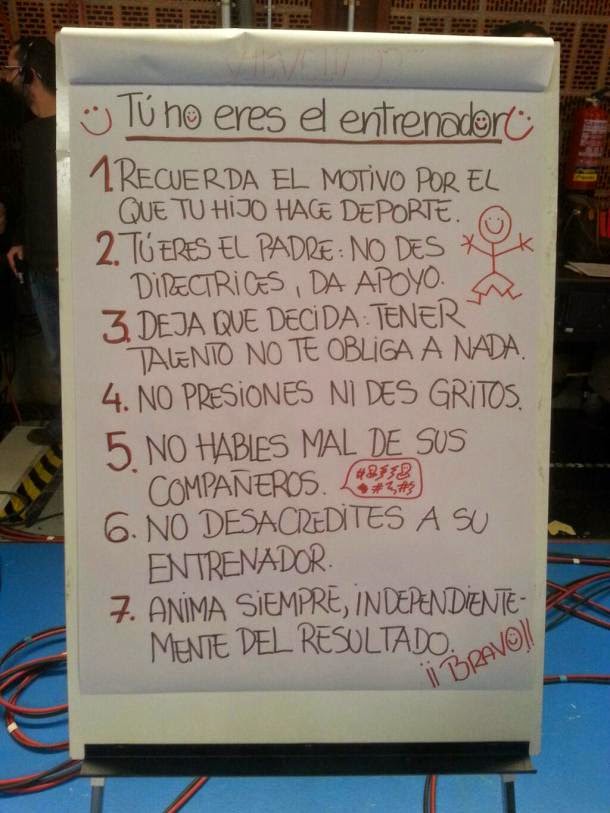 Tú no eres el entrenador
1. RECUERDA EL MOTIVO POR EL
QUE TU HIJO HACE DEPORTE.
2. TÚ ERES EL PADRE: NO DES
DIRECTRICES, DA APOYO.
3. DEJA QUE DECIDA: TENER
TALENTO NO TE OBLIGA A NADA.
4. NO PRESIONES NI DES GRITOS.
5. NO HABLES MAL DE SUS
COMPAÑEROS.
6. NO DESACREDITES A SU
ENTRENADOR.
7. ANIMA SIEMPRE, INDEPENDIENTE-
MENTE DEL RESULTADO.
¡¡BRAVO!!